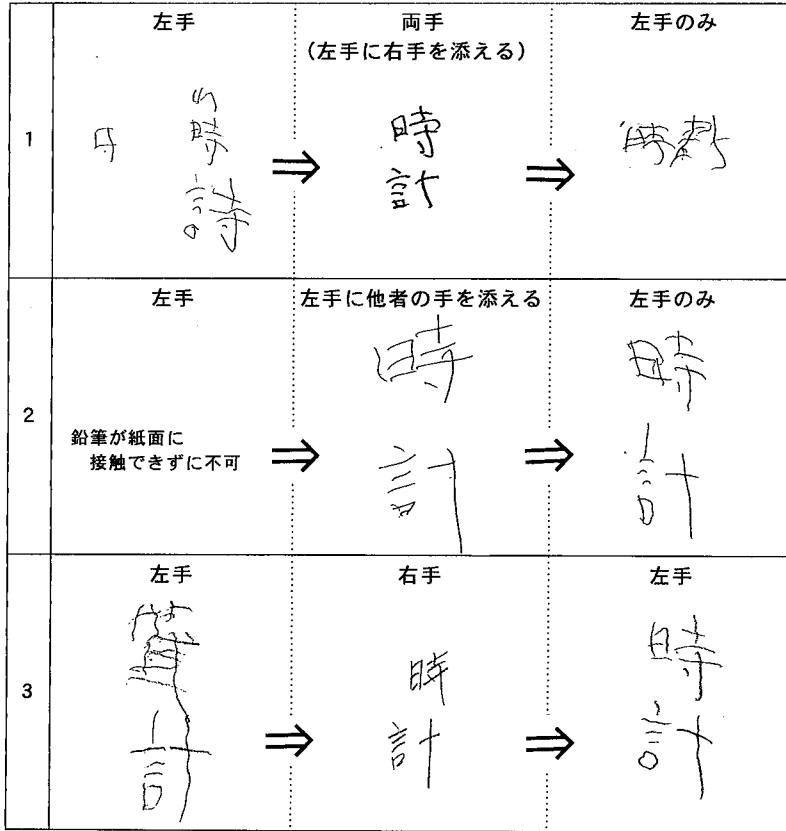 左手
両手
(左手に右手を添える)
左手のみ
1
日
時
詩
⇒
時
計
⇒
時
左手
左手に他者の手を添える
左手のみ
2
鉛筆が紙面に
接触できずに不可
⇒
時
計
⇒
時
計
左手
右手
左手
3
計
⇒
時
計
⇒
時
計